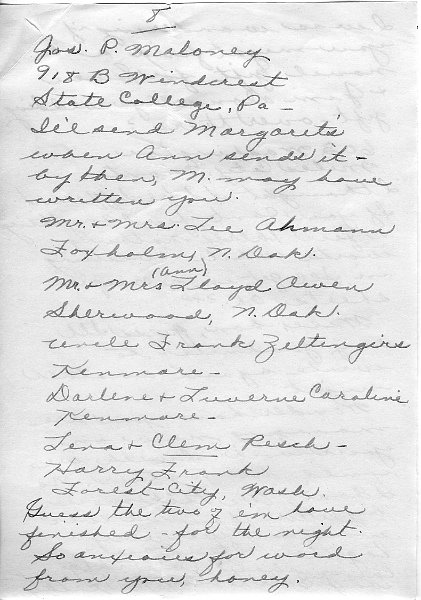 8
Jos. P. Maloney
918 B Windcrest
State College, Pa -
I'll send Margaret's
when Ann sends it -
by then, M. may have
written you.
Mr. + Mrs. Lee Ahmann
Foxholm, N. Dak.
(Ann)
Mr. + Mrs Lloyd Owen
Sherwood, N. Dak.
Uncle Frank Zeltengirs
Kenmare -
Darlene + Luverne Caroline
Kenmare -
Lena + Clem Resch -
Harry Frank
Forest City, Wash.
Guess the two of 'em have
finished - for the night.
So anxious for word
from you, honey.